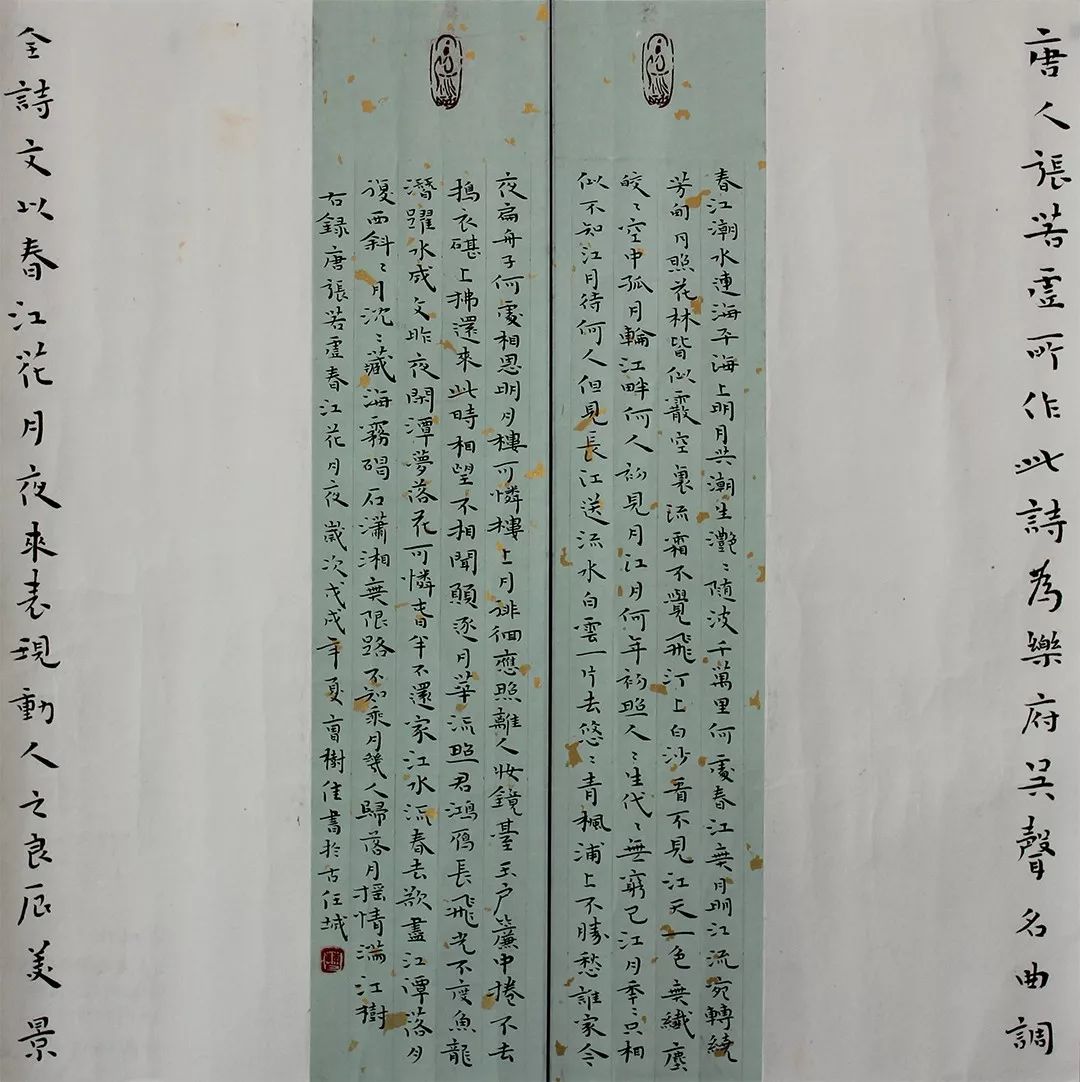 唐人張若虛所作此詩為樂府吳聲名曲調
春江潮水連海平海上明月共潮生灧〻隨波千萬里何處春江無月明江流宛轉繞
芳甸月照花林皆似霰空裏流霜不覺飛汀上白沙看不見江天一色無纖塵
皎〻空中孤月輪江畔何人初見月江月何年初照人〻生代〻無窮已江月年〻只相
似不知江月待何人但見長江送流水白雲一片去悠〻青楓浦上不勝愁誰家今
夜扁舟子何處相思明月樓可憐樓上月徘徊應照離人妝鏡臺玉戶簾中捲不去
搗衣碪上拂還來此時相望不相聞願逐月華流照君鴻鴈長飛光不度魚龍
潛躍水成文昨夜閑潭夢落花可憐春半不還家江水流春去欲盡江潭落月
復西斜〻月沈〻藏海霧碣石瀟湘無限路不知乘月幾人歸落月搖情滿江樹
右錄唐張若虛春江花月夜歲次戊戌年夏曹樹佳書於古任城
全詩文以春江花月夜來表現動人之良辰美景